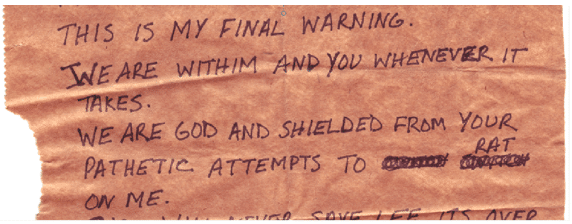 THIS IS MY FINAL WARNING.
WE ARE WITHIM AND YOU WHENEVER IT
TAKES.
WE ARE GOD AND SHIELDED FROM YOUR
PATHETIC ATTEMPTS TO RAT
ON ME.
WILL NEVER SAVE LEE ITS OVER